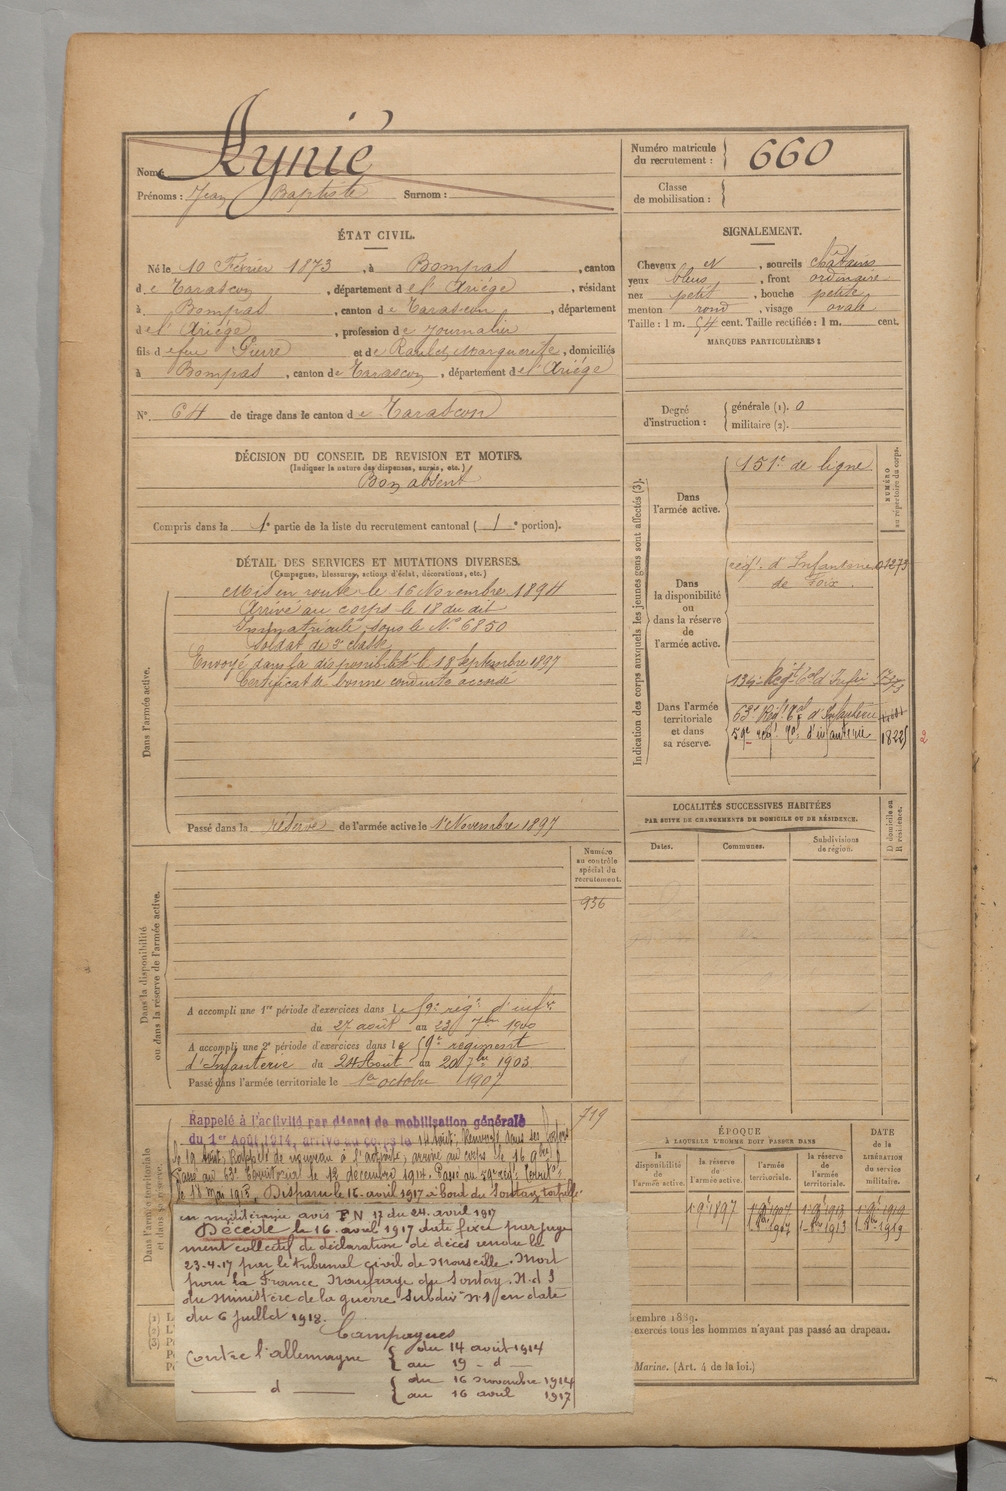 Nom : Aynié
Prénoms : Jean Baptiste Surnom :
Numéro matricule du recrutement : 660
Classe de mobilisation :
ÉTAT CIVIL.
Né le 10 Février 1873, à Bompas, canton
de Tarascon, département de l'Ariège, résidant
à Bompas, canton de Tarascon, département
de l'Ariège, profession de Journalier
fils de feu Pierre et de Raulet Marguerite, domiciliés
à Bompas, canton de Tarascon, département de l'Ariège
N° 64 de tirage dans le canton de Tarascon
SIGNALEMENT.
Cheveux N, sourcils châtains
yeux bleus, front ordinaire
nez petit, bouche petite
menton rond, visage ovale
Taille : 1 m. 54 cent. Taille rectifiée : 1 m. cent.
MARQUES PARTICULIÈRES :
Degré d'instruction : générale (1). 0
militaire (2).
DÉCISION DU CONSEIL DE REVISION ET MOTIFS.
(Indiquer la nature des dispenses, sursis, etc.)
Bon absent
Compris dans la 1e partie de la liste du recrutement cantonal ( 1 e portion).
DÉTAIL DES SERVICES ET MUTATIONS DIVERSES.
(Campagnes, blessures, actions d'éclat, décorations, etc.)
Dans l'armée active.
Mis en route le 16 Novembre 1894
Arrivé au corps le 18 du dit
Immatriculé sous le N° 6850
Soldat de 2e classe
Envoyé dans la disponibilité le 18 Septembre 1897
Certificat de bonne conduite accordé
Passé dans la réserve de l'armée active le 1er Novembre 1897
Indication des corps auxquels les jeunes gens sont affectés (3).
NUMÉRO au répertoire du corps.
Dans l'armée active.
151e de ligne
Dans la disponibilité ou dans la réserve de l'armée active.
régt. d'Infanterie 01273
de Foix.
Dans l'armée territoriale et dans sa réserve.
134e Régt Tal d'Infie
63e Régt Tal d'Infanterie
59e régt Tal d'infanterie 1822
2
LOCALITÉS SUCCESSIVES HABITÉES
PAR SUITE DE CHANGEMENTS DE DOMICILE OU DE RÉSIDENCE.
D domicile ou R résidence.
Dates. Communes. Subdivisions de région.
Dans la disponibilité ou dans la réserve de l'armée active.
Numéro au contrôle spécial du recrutement.
936
A accompli une 1re période d'exercices dans le 59e régt d'infie
du 27 août au 23 7bre 1900
A accompli une 2e période d'exercices dans le 59e régiment
d'Infanterie du 24 Août au 20 7bre 1903
Passé dans l'armée territoriale le 1er octobre 1907
Dans l'armée territoriale et dans sa réserve.
719
Rappelé à l'activité par décret de mobilisation générale
du 1er Août 1914, arrivé au corps le 14 août, Renvoyé dans ses foyers
le 19 août, Rappelé de nouveau à l'activité, arrivé au corps le 16 9bre
Passé au 63e Territorial le 12 décembre 1914. Passé au 59e rég. Territ.
le 18 mai 1915. Disparu le 16 avril 1917 à bord du Sontay torpillé
en méditerranée avis F N 17 du 24 avril 1917
Décédé le 16 avril 1917 date fixée par juge
ment collectif de déclaration de décès rendu le
23-4-17 par le tribunal civil de Marseille. Mort
pour la France Naufrage du Sontay. N. d S
du Ministère de la guerre Subdivon n°1 en date
du 6 juillet 1918.
Campagnes
Contre l'allemagne du 14 août 1914
au 19 - d -
- d - du 16 novembre 1914
au 16 avril 1917
ÉPOQUE
À LAQUELLE L'HOMME DOIT PASSER DANS
DATE de la LIBÉRATION du service militaire.
la disponibilité de l'armée active. la réserve de l'armée active. l'armée territoriale. la réserve de l'armée territoriale.
1er 9bre 1897 1er 9bre 1907 1er 9bre 1913 1er 9bre 1919
1er 8bre 1907 1er 8bre 1913 1er 8bre 1919
(1)
(2)
(3)
embre 1889.
exercés tous les hommes n'ayant pas passé au drapeau.
Marine. (Art. 4 de la loi.)